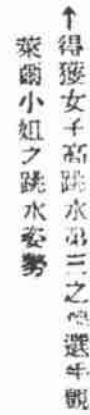 ↑得獲女子高跳水第三之選手觀
萊爾小姐之跳水姿勢